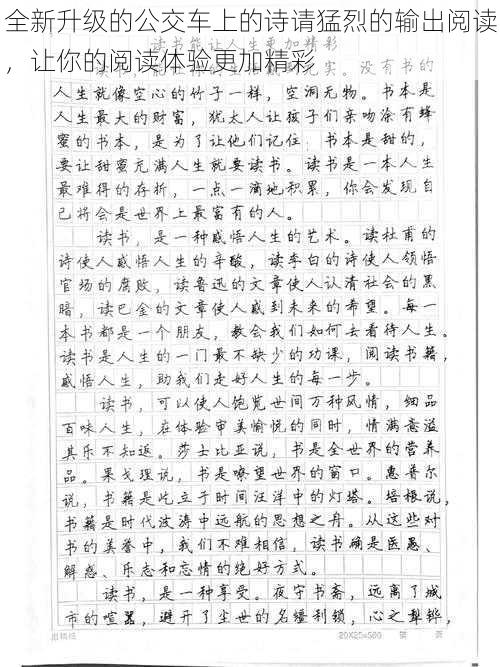 全新升级的公交车上的诗请猛烈的输出阅读
，让你的阅读体验更加精彩
读书能让人生更加精彩
没有书的
人生就像空心的竹子一样，空洞无物。书本是
人生最大的财富，犹太人让孩子们亲吻涂有蜂
蜜的书本，是为了让他们记住：书本是甜的，
要让甜蜜充满人生就要读书。读书是一本人生
最难得的存折，一点一滴地积累，你会发现自
己将会是世界上最富有的人。
读书，是一种感悟人生的艺术。读杜甫的
诗使人感悟人生的辛酸，读李白的诗使人领悟
官场的腐败，读鲁迅的文章使人认清社会的黑
暗，读巴金的文章使人感到未来的希望。每一
本书都是一个朋友，教会我们如何去看待人生。
读书是人生的一门最不缺少的功课，阅读书籍，
感悟人生，助我们走好人生的每一步。
读书，可以使人饱览世间万种风情，细品
百味人生，在体验审美愉悦的同时，情满意溢
其乐不知返。莎士比亚说，书是全世界的营养
品。果戈理说，书是嘹望世界的窗口。惠普尔
说，书籍是屹立于时间汪洋中的灯塔。培根说，
书籍是时代波涛中远航的思想之舟。从这些对
书的美誉中，我们不难相信，读书确是医愚、
解惑、乐志和忘情的绝好方式。
读书，是一种享受。夜守书斋，远离了城
市的喧嚣，避开了尘世的名缰利锁，心之犁铧，
出稿纸 20X25=500 第 页